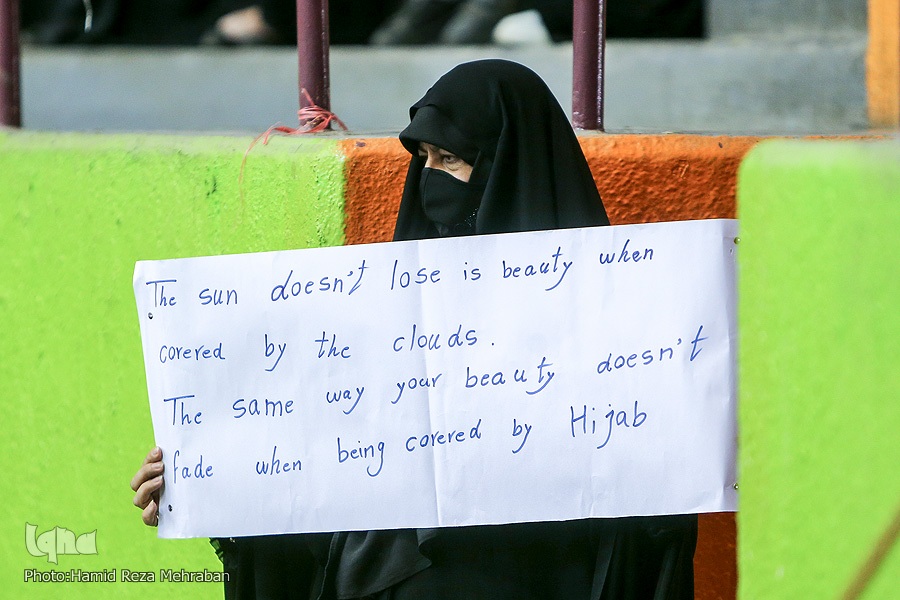 The sun doesn't lose is beauty when
covered by the clouds.
The same way your beauty doesn't
fade when being covered by Hijab
Iqna
Photo:Hamid Reza Mehraban